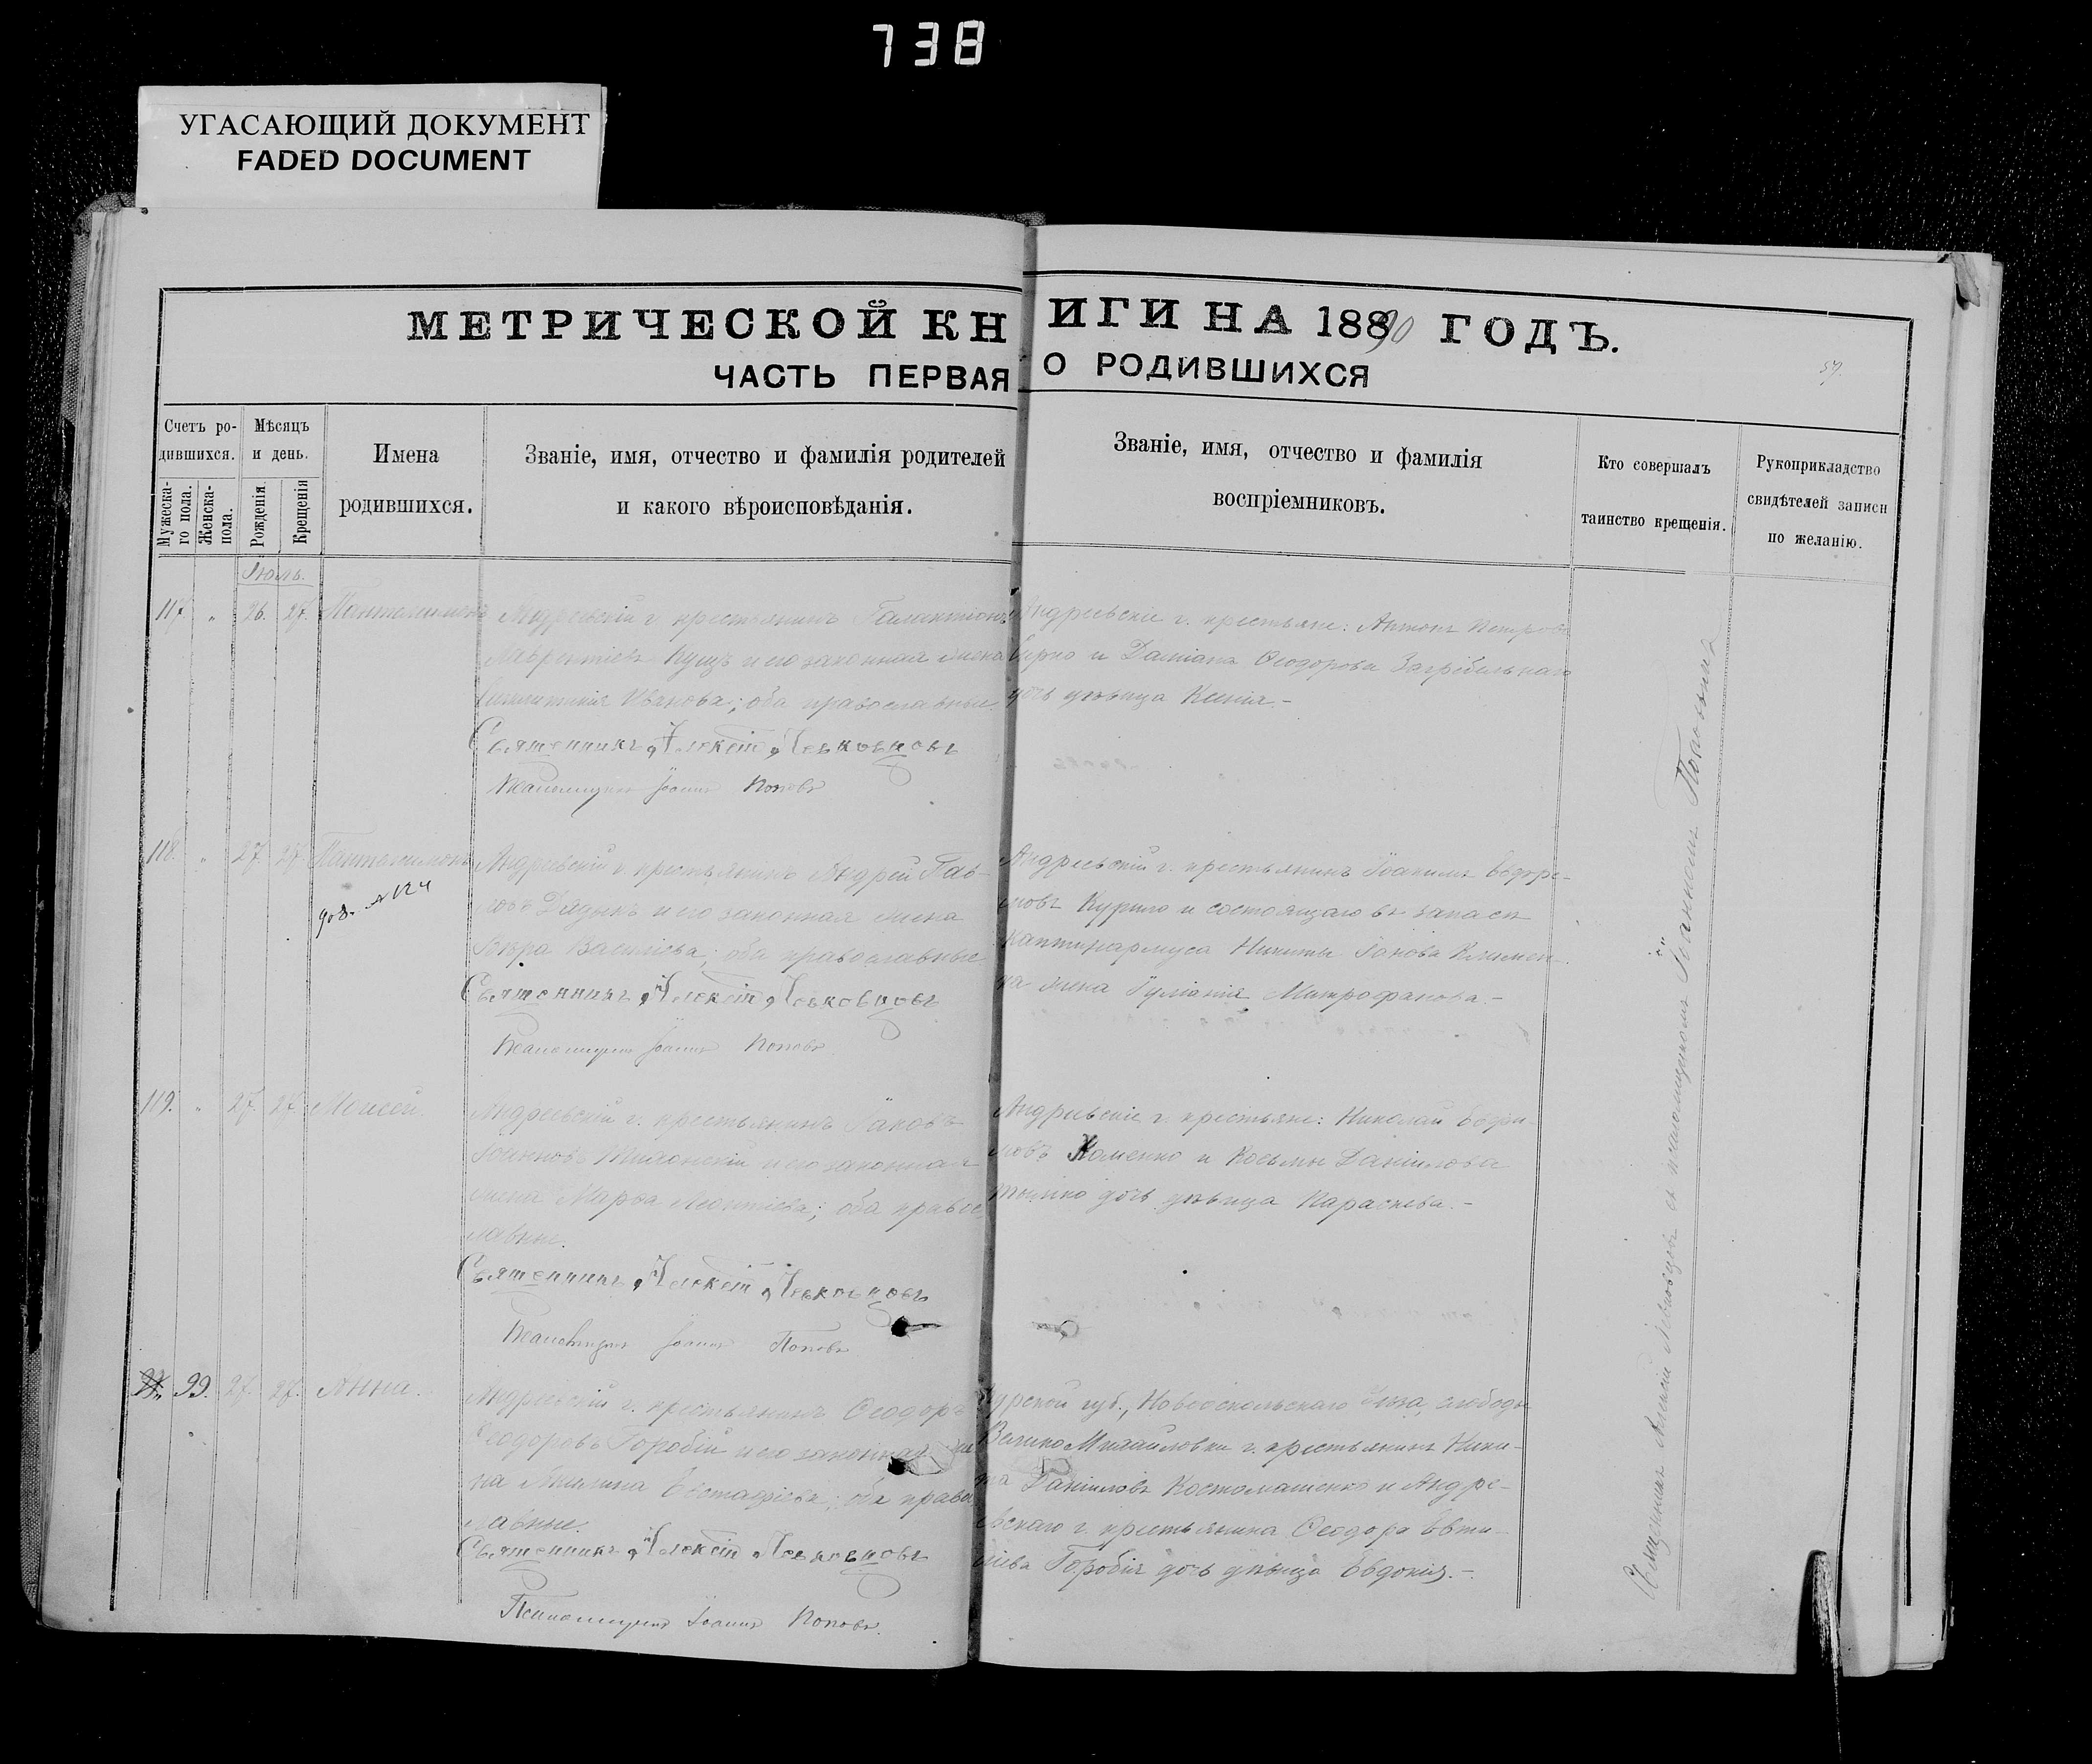 738
УГАСАЮЩИЙ ДОКУМЕНТ
FADED DOCUMENT
МЕТРИЧЕСКОЙ КНИГИ НА 1890 ГОДЪ.
ЧАСТЬ ПЕРВАЯ О РОДИВШИХСЯ
57.
Счетъ ро-
дившихся.
Мужеска-
го пола.
Женска-
пола.
Мѣсяцъ
и день.
Рожденія.
Крещенія
Имена
родившихся.
Званіе, имя, отчество и фамилія родителей
и какого вѣроисповѣданія.
Званіе, имя, отчество и фамилія
воспріемниковъ.
Кто совершалъ
таинство крещенія.
Рукоприкладство
свидѣтелей записи
по желанію.
Іюль.
117. " 26. 27. Пантелеимонъ
Андреевскій г. крестьянинъ Галактіонъ
Лаврентіевъ Кущъ и его законная жена
Иванова; оба православные.
Священникъ Алексій Левковцовъ
Псаломщикъ Іоаннъ Поповъ
Андреевскіе г. крестьяне: Антонъ Петровъ
и Даміана Ѳеодорова Загребельнаго
дочь дѣвица Ксенія.-
118. " 27. 27. Пантелеимонъ
Андреевскій г. крестьянинъ Андрей Пав-
ловъ Дядикъ и его законная жена
Вѣра Василіева; оба православные.
Священникъ Алексій Левковцовъ
Псаломщикъ Іоаннъ Поповъ
Андреевскій г. крестьянинъ Іоакимъ Ефре-
мовъ Курило и состоящаго въ запасѣ
каптинармуса Никиты Іакова Климен-
ка жена Іуліанія Митрофанова.-
119. " 27. 27. Моисей.
Андреевскій г. крестьянинъ Іаковъ
Іоанновъ и его законная
жена Марѳа Леонтіева; оба правос-
лавные.
Священникъ Алексій Левковцовъ
Псаломщикъ Іоаннъ Поповъ
Андреевскіе г. крестьяне: Николай Ефи-
мовъ Хоменко и Косьмы Даніилова
дочь дѣвица Параскева.-
99. 27. 27. Анна.
Андреевскій г. крестьянинъ Ѳеодоръ
Ѳеодоровъ Горобій и его законная же
на Акилина Евстафіева; оба право
лавные.
Священникъ Алексій Левковцовъ
Псаломщикъ Іоаннъ Поповъ.
Курской губ., Новооскольскаго уѣзда, слободы
Велико Михайловки г. крестьянинъ Ники-
та Даніиловъ Костомашенко и Андре-
евскаго г. крестьянина Ѳеодора
Горобія дочь дѣвица Евдокія.-
Священникъ Алексій Левковцовъ съ псаломщикомъ Іоанномъ Поповымъ